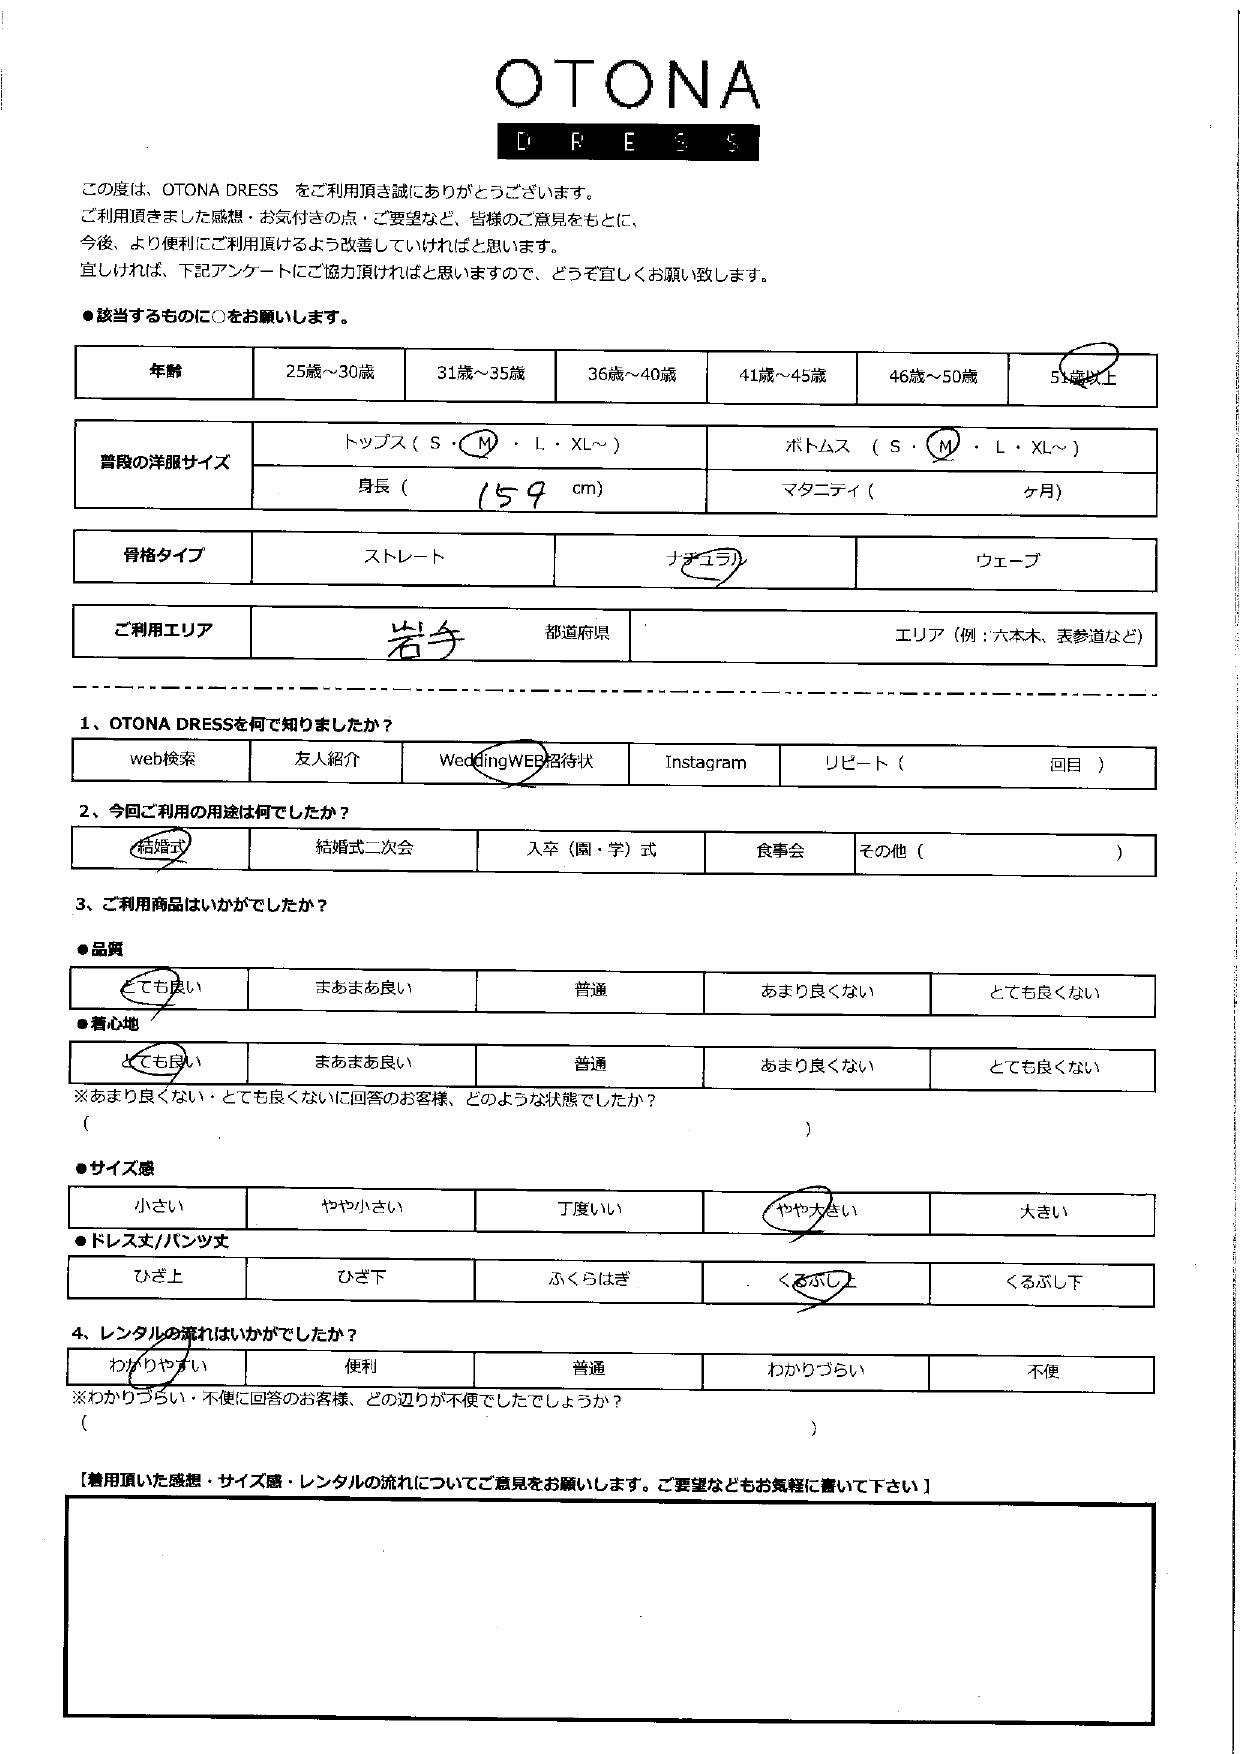 OTONA
DRESS
この度は、OTONA DRESS　をご利用頂き誠にありがとうございます。
ご利用頂きました感想・お気付きの点・ご要望など、皆様のご意見をもとに、
今後、より便利にご利用頂けるよう改善していければと思います。
宜しければ、下記アンケートにご協力頂ければと思いますので、どうぞ宜しくお願い致します。
●該当するものに○をお願いします。
年齢 25歳～30歳 31歳～35歳 36歳～40歳 41歳～45歳 46歳～50歳 51歳以上
普段の洋服サイズ トップス ( S ・ M ・ L ・ XL～ ) ボトムス ( S ・ M ・ L ・ XL～ )
身長 ( 159 cm) マタニティ ( ヶ月)
骨格タイプ ストレート ナチュラル ウェーブ
ご利用エリア 岩手 都道府県 エリア（例：六本木、表参道など)
1、OTONA DRESSを何で知りましたか？
web検索 友人紹介 WeddingWEB招待状 Instagram リピート ( 回目 )
2、今回ご利用の用途は何でしたか？
結婚式 結婚式二次会 入卒（園・学）式 食事会 その他 ( )
3、ご利用商品はいかがでしたか？
●品質
とても良い まあまあ良い 普通 あまり良くない とても良くない
●着心地
とても良い まあまあ良い 普通 あまり良くない とても良くない
※あまり良くない・とても良くないに回答のお客様、どのような状態でしたか？
( )
●サイズ感
小さい やや小さい 丁度いい やや大きい 大きい
●ドレス丈/パンツ丈
ひざ上 ひざ下 ふくらはぎ くるぶし上 くるぶし下
4、レンタルの流れはいかがでしたか？
わかりやすい 便利 普通 わかりづらい 不便
※わかりづらい・不便に回答のお客様、どの辺りが不便でしたでしょうか？
( )
【着用頂いた感想・サイズ感・レンタルの流れについてご意見をお願いします。ご要望などもお気軽に書いて下さい 】